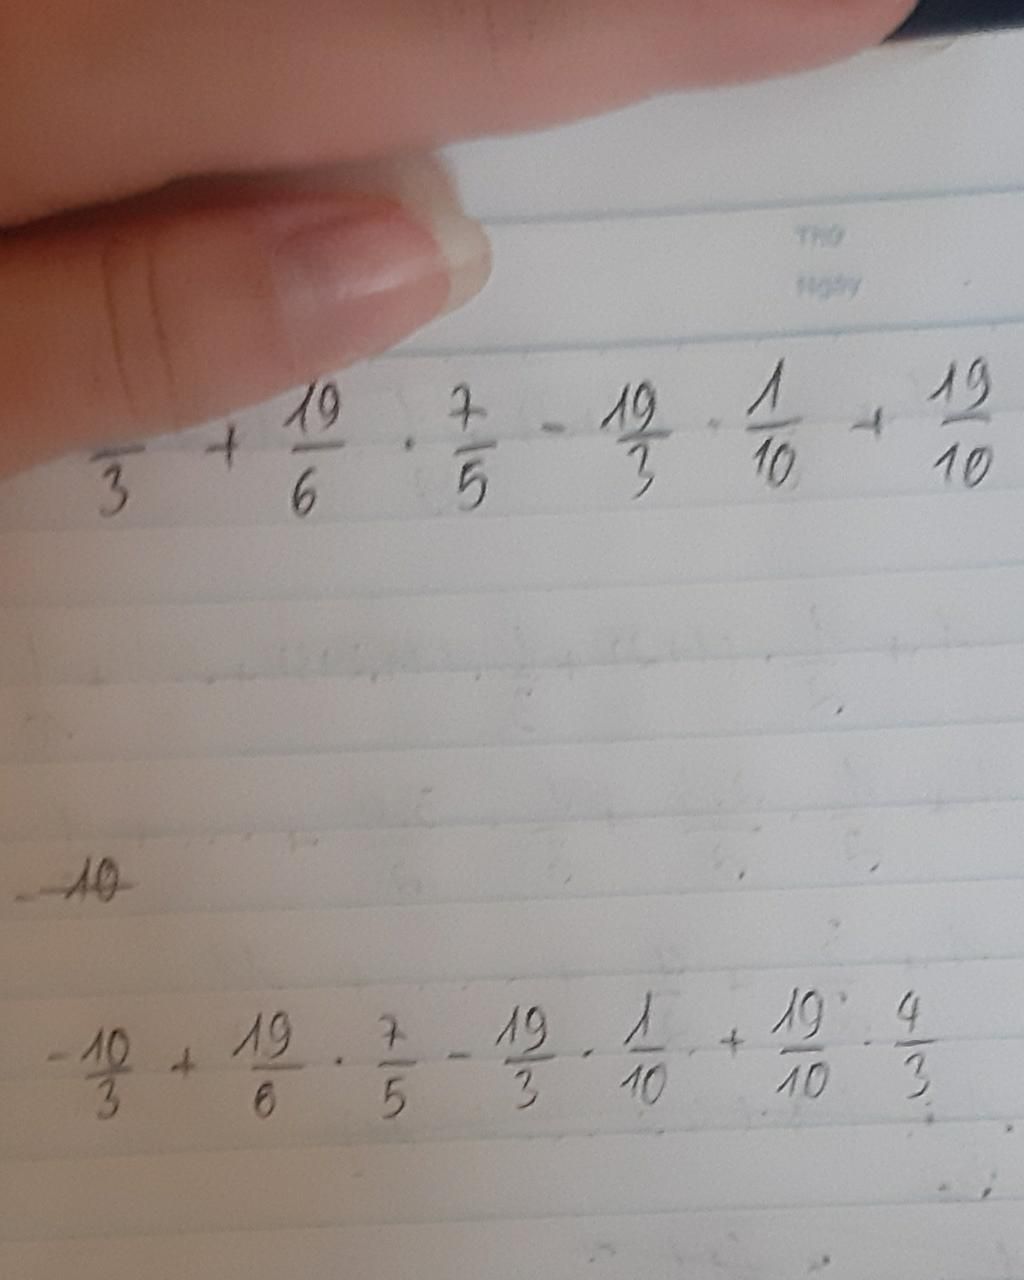 Thứ
Ngày
/3 + 19/6 . 7/5 - 19/3 . 1/10 + 19/10
-10
-10/3 + 19/6 . 7/5 - 19/3 . 1/10 + 19/10 . 4/3